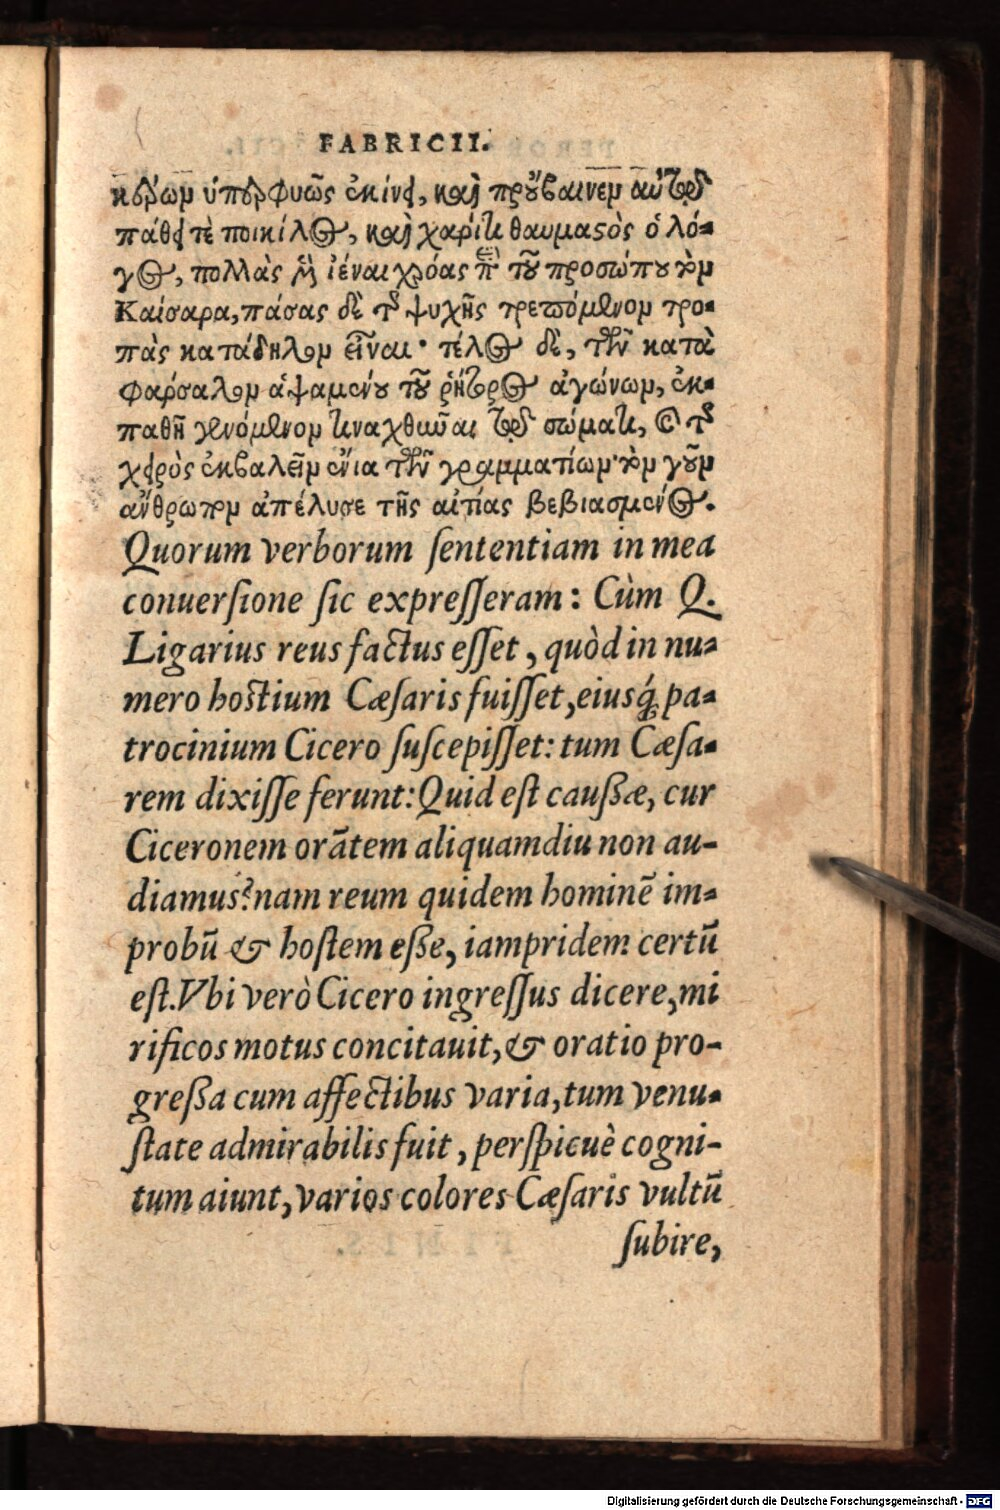 FABRICII.
κέρων ὑπερφυῶς ἐκίνει, καὶ προὔβαινεν αὐτῷ
πάθει τὲ ποικίλος, καὶ χάριτι θαυμαστὸς ὁ λό-
γος, πολλὰς μὲν ἱέναι χρόας ἐπὶ τοῦ προσώπου τὸν
Καίσαρα, πάσας δὲ τῆς ψυχῆς τρεπόμενον τρο-
πὰς κατάδηλον εἶναι· τέλος δὲ, τῶν κατὰ
φάρσαλον ἁψαμένου τοῦ ῥήτορος ἀγώνων, ἐκ-
παθῆ γενόμενον τιναχθῆναι τῷ σώματι, καὶ τῆς
χειρὸς ἐκβαλεῖν ἔνια τῶν γραμματίων· τὸν γοῦν
ἄνθρωπον ἀπέλυσε τῆς αἰτίας βεβιασμένος.
Quorum verborum ſententiam in mea
conuerſione ſic expreſſeram: Cùm Q.
Ligarius reus factus eſſet, quòd in nu-
mero hostium Cæſaris fuiſſet, eiusq́; pa-
trocinium Cicero ſuſcepiſſet: tum Cæſa-
rem dixiſſe ferunt: Quid eſt cauſſæ, cur
Ciceronem orãtem aliquamdiu non au-
diamus? nam reum quidem hominẽ im-
probũ & hoſtem eſſe, iampridem certũ
eſt. Vbi verò Cicero ingreſſus dicere, mi
rificos motus concitauit, & oratio pro-
greſſa cum affectibus varia, tum venu-
ſtate admirabilis fuit, perſpicuè cogni-
tum aiunt, varios colores Cæſaris vultũ
ſubire,
Digitalisierung gefördert durch die Deutsche Forschungsgemeinschaft - DFG